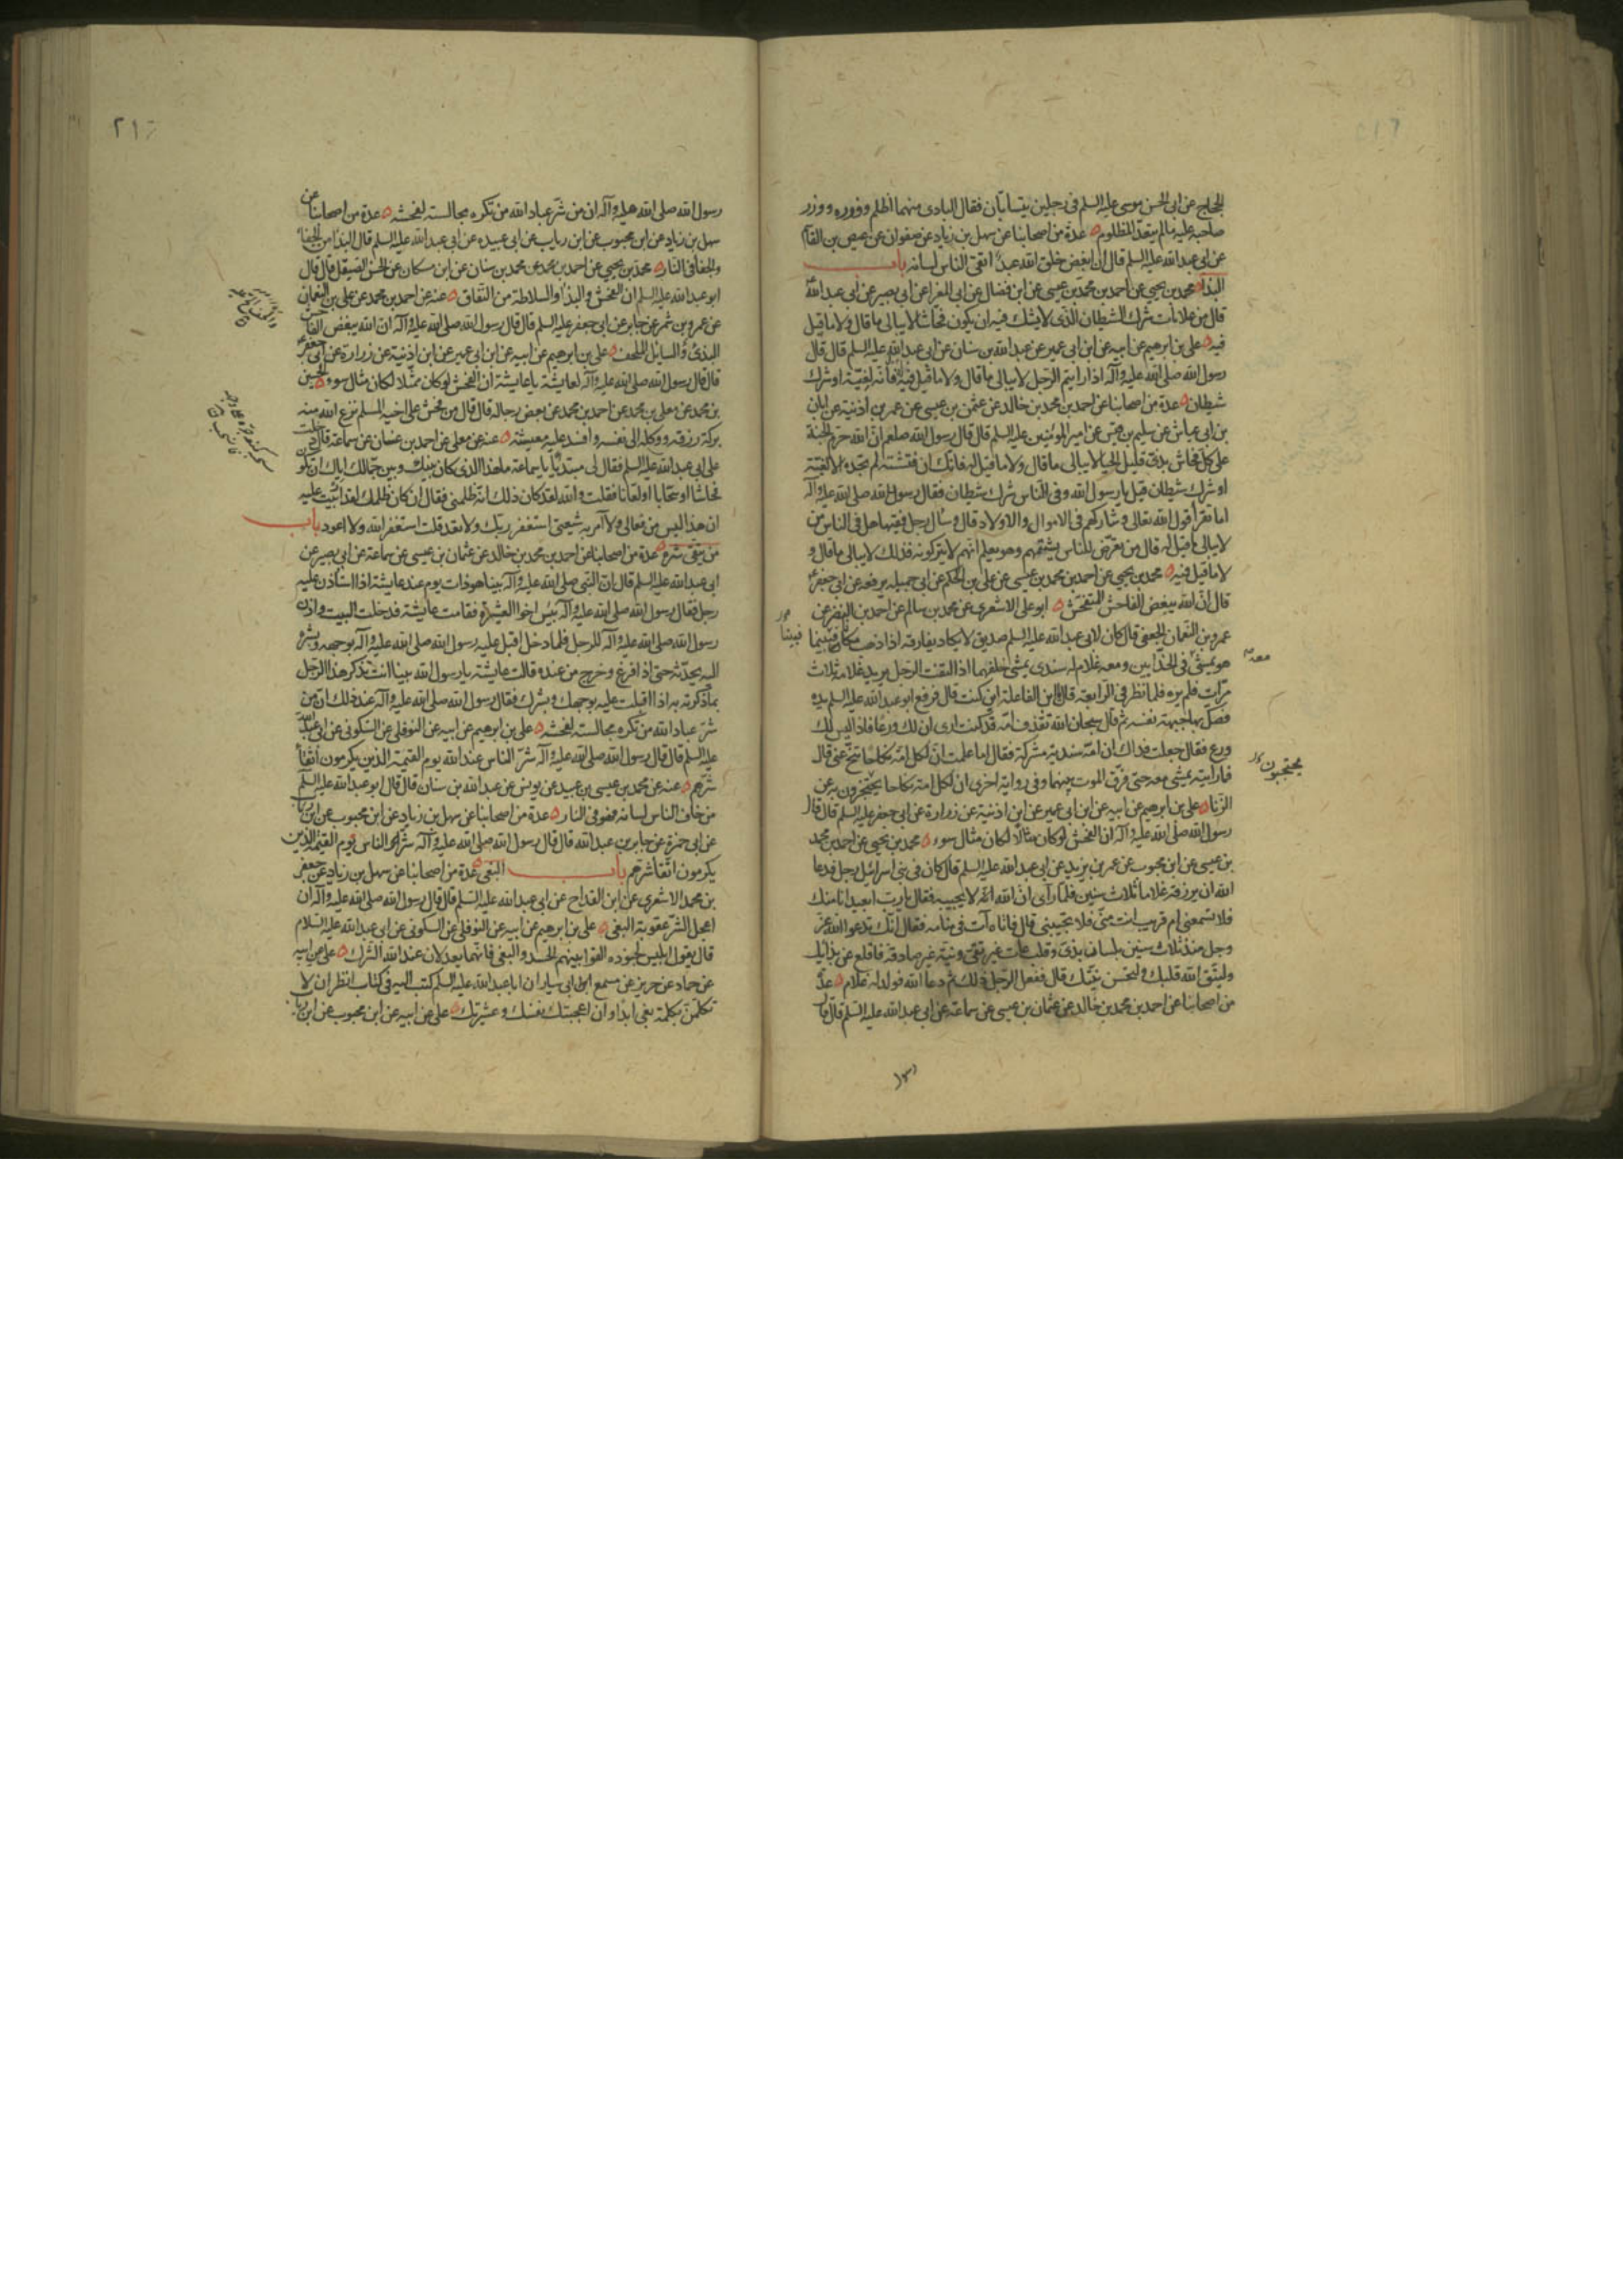 الحجاج عن ابی الحسن موسی علیه السلم فی رجلین یتسابان فقال البادی منهما اظلم ووزره ووزر
صاحبه علیه ما لم یتعد المظلوم عدة من اصحابنا عن سهل بن زیاد عن صفوان عن عیص بن القاسم
عن ابی عبد الله علیه السلم قال ان ابغض خلق الله عبد اتقی الناس لسانه باب
البذا محمد بن یحیی عن احمد بن محمد بن عیسی عن ابن فضال عن ابی المغرا عن ابی بصیر عن ابی عبد الله
قال من علامات شرك الشیطان الذی لا یشك فیه ان یکون فحاشا لا یبالی ما قال ولا ما قیل
فیه علی بن ابرهیم عن ابیه عن ابن ابی عمیر عن عبد الله بن سنان عن ابی عبد الله علیه السلم قال قال
رسول الله صلی الله علیه وآله اذا رایتم الرجل لا یبالی ما قال ولا ما قیل فیه فانه لغیة او شرك
شیطان عدة من اصحابنا عن احمد بن محمد بن خالد عن عثمن بن عیسی عن عمر بن اذنیة عن ابان
بن ابی عیاش عن سلیم بن قیس عن امیر المؤمنین علیه السلم قال قال رسول الله صلعم ان الله حرم الجنة
علی کل فحاش بذی قلیل الحیا لا یبالی ما قال ولا ما قیل له فانك ان فتشته لم تجده الا لغیة
او شرك شیطان قیل یا رسول الله وفی الناس شرك شیطان فقال رسول الله صلی الله علیه وآله
اما تقرأ قول الله تعالی وشارکهم فی الاموال والاولاد قال وسأل رجل فقیها هل فی الناس من
لا یبالی ما قیل له قال من تعرض للناس یشتمهم وهو یعلم انهم لا یترکونه فذلك لا یبالی ما قال و
لا ما قیل فیه محمد بن یحیی عن احمد بن محمد بن عیسی عن علی بن الحکم عن ابی جمیلة یرفعه عن ابی جعفر
قال ان الله یبغض الفاحش المتفحش ابو علی الاشعری عن محمد بن سالم عن احمد بن النضر عن
عمرو بن النعمان الجعفی قال کان لابی عبد الله علیه السلم صدیق لا یکاد یفارقه اذا ذهب مکانا فبینما
هو یمشی فی الحذایین ومعه غلام له سندی یمشی خلفهما اذا التفت الرجل یرید غلامه ثلاث
مرات فلم یره فلما نظر فی الرابعة قال یا ابن الفاعلة این کنت قال فرفع ابو عبد الله علیه السلم یده
فصك بها جبهة نفسه ثم قال سبحان الله تقذف امه قد کنت اری ان لك ورعا فاذا لیس لك
ورع فقال جعلت فداك ان امه سندیة مشرکة فقال اما علمت ان لکل امة نکاحا تنح عنی قال
فما رایته یمشی معه حتی فرق الموت بینهما وفی روایة اخری ان لکل امة نکاحا یحتجزون به عن
الزنا علی بن ابرهیم عن ابیه عن ابن ابی عمیر عن ابن اذنیة عن زرارة عن ابی جعفر علیه السلم قال قال
رسول الله صلی الله علیه وآله ان الفحش لو کان مثالا لکان مثال سوء محمد بن یحیی عن احمد بن محمد
بن عیسی عن ابن محبوب عن عمر بن یزید عن ابی عبد الله علیه السلم قال کان فی بنی اسرائیل رجل فدعا
الله ان یرزقه غلاما ثلاث سنین فلما رآی ان الله لا یجیبه فقال یا رب ابعید انا منك
فلا تسمعنی ام قریب انت منی فلا تجیبنی قال فاتاه آت فی منامه فقال انك تدعو الله عز
وجل منذ ثلاث سنین بلسان بذی وقلب عات غیر تقی ونیة غیر صادقة فاقلع عن بذائك
ولیتق الله قلبك ولتحسن نیتك قال ففعل الرجل ذلك ثم دعا الله فولد له غلام عدة
من اصحابنا عن احمد بن محمد بن خالد عن عثمان بن عیسی عن سماعة عن ابی عبد الله علیه السلم قال قال
رسول
معه
یحتجبون
فبینا
رسول الله صلی الله علیه وآله ان من شر عباد الله من تکره مجالسته لفحشه عدة من اصحابنا عن
سهل بن زیاد عن ابن محبوب عن ابن ریاب عن ابی عبیده عن ابی عبد الله علیه السلم قال البذا من الجفا
والجفا فی النار محمد بن یحیی عن احمد بن محمد عن محمد بن سنان عن ابن مسکان عن الحسن الصیقل قال قال
ابو عبد الله علیه السلم ان الفحش والبذا والسلاطة من النفاق عنه عن احمد بن محمد عن علی بن النعمان
عن عمرو بن شمر عن جابر عن ابی جعفر علیه السلم قال قال رسول الله صلی الله علیه وآله ان الله یبغض الفاحش
البذی والسایل الملحف علی بن ابرهیم عن ابیه عن ابن ابی عمیر عن ابن اذنیة عن زرارة عن ابی جعفر
قال قال رسول الله صلی الله علیه وآله لعایشة یا عایشة ان الفحش لو کان ممثلا لکان مثال سوء الحسین
بن محمد عن معلی بن محمد عن احمد بن محمد عن بعض رجاله قال قال من فحش علی اخیه المسلم نزع الله منه
برکة رزقه ووکله الی نفسه وافسد علیه معیشته عنه عن معلی عن احمد بن غسان عن سماعة قال دخلت
علی ابی عبد الله علیه السلم فقال لی مبتدئا یا سماعة ما هذا الذی کان بینك وبین جمالك ایاك ان تکون
فحاشا او سخابا او لعانا فقلت والله لقد کان ذلك انه ظلمنی فقال ان کان ظلمك لقد اربیت علیه
ان هذا لیس من فعالی ولا آمر به شیعتی استغفر ربك ولا تعد قلت استغفر الله ولا اعود باب
من یتقی شره عدة من اصحابنا عن احمد بن محمد بن خالد عن عثمان بن عیسی عن سماعة عن ابی بصیر عن
ابی عبد الله علیه السلم قال ان النبی صلی الله علیه وآله بینا هو ذات یوم عند عایشة اذا استاذن علیه
رجل فقال رسول الله صلی الله علیه وآله بئس اخوا العشیرة فقامت عایشة فدخلت البیت واذن
رسول الله صلی الله علیه وآله للرجل فلما دخل اقبل علیه رسول الله صلی الله علیه وآله بوجهه وبشره
الیه یحدثه حتی اذا فرغ وخرج من عنده قالت عایشة یا رسول الله بینا انت تذکر هذا الرجل
بما ذکرته به اذ اقبلت علیه بوجهك وبشرك فقال رسول الله صلی الله علیه وآله عند ذلك ان من
شر عباد الله من تکره مجالسته لفحشه علی بن ابرهیم عن ابیه عن النوفلی عن السکونی عن ابی عبد الله
علیه السلم قال قال رسول الله صلی الله علیه وآله شر الناس عند الله یوم القیمة الذین یکرمون اتقاء
شرهم عنه عن محمد بن عیسی بن عبید عن یونس عن عبد الله بن سنان قال قال ابو عبد الله علیه السلم
من خاف الناس لسانه فهو فی النار عدة من اصحابنا عن سهل بن زیاد عن ابن محبوب عن ابن ریاب
عن ابی حمزة عن جابر بن عبد الله قال قال رسول الله صلی الله علیه وآله شر الناس یوم القیمة الذین
یکرمون اتقا شرهم باب البغی عدة من اصحابنا عن سهل بن زیاد عن جعفر
بن محمد الاشعری عن ابن القداح عن ابی عبد الله علیه السلم قال قال رسول الله صلی الله علیه وآله ان
اعجل الشر عقوبة البغی علی بن ابرهیم عن ابیه عن النوفلی عن السکونی عن ابی عبد الله علیه السلام
قال یقول ابلیس لجنوده القوا بینهم الحسد والبغی فانهما یعدلان عند الله الشرك علی عن ابیه
عن حماد عن حریز عن مسمع ابی سیار ان ابا عبد الله علیه السلم کتب الیه فی کتاب انظر ان لا
تکلمن بکلمة بغی ابدا وان اعجبتك نفسك وعشیرتك علی عن ابیه عن ابن محبوب عن ابن ریاب